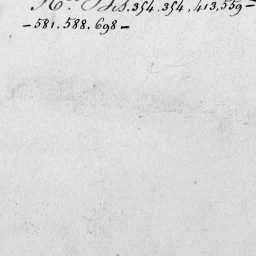 354.354.413.559-
-581.588.698-